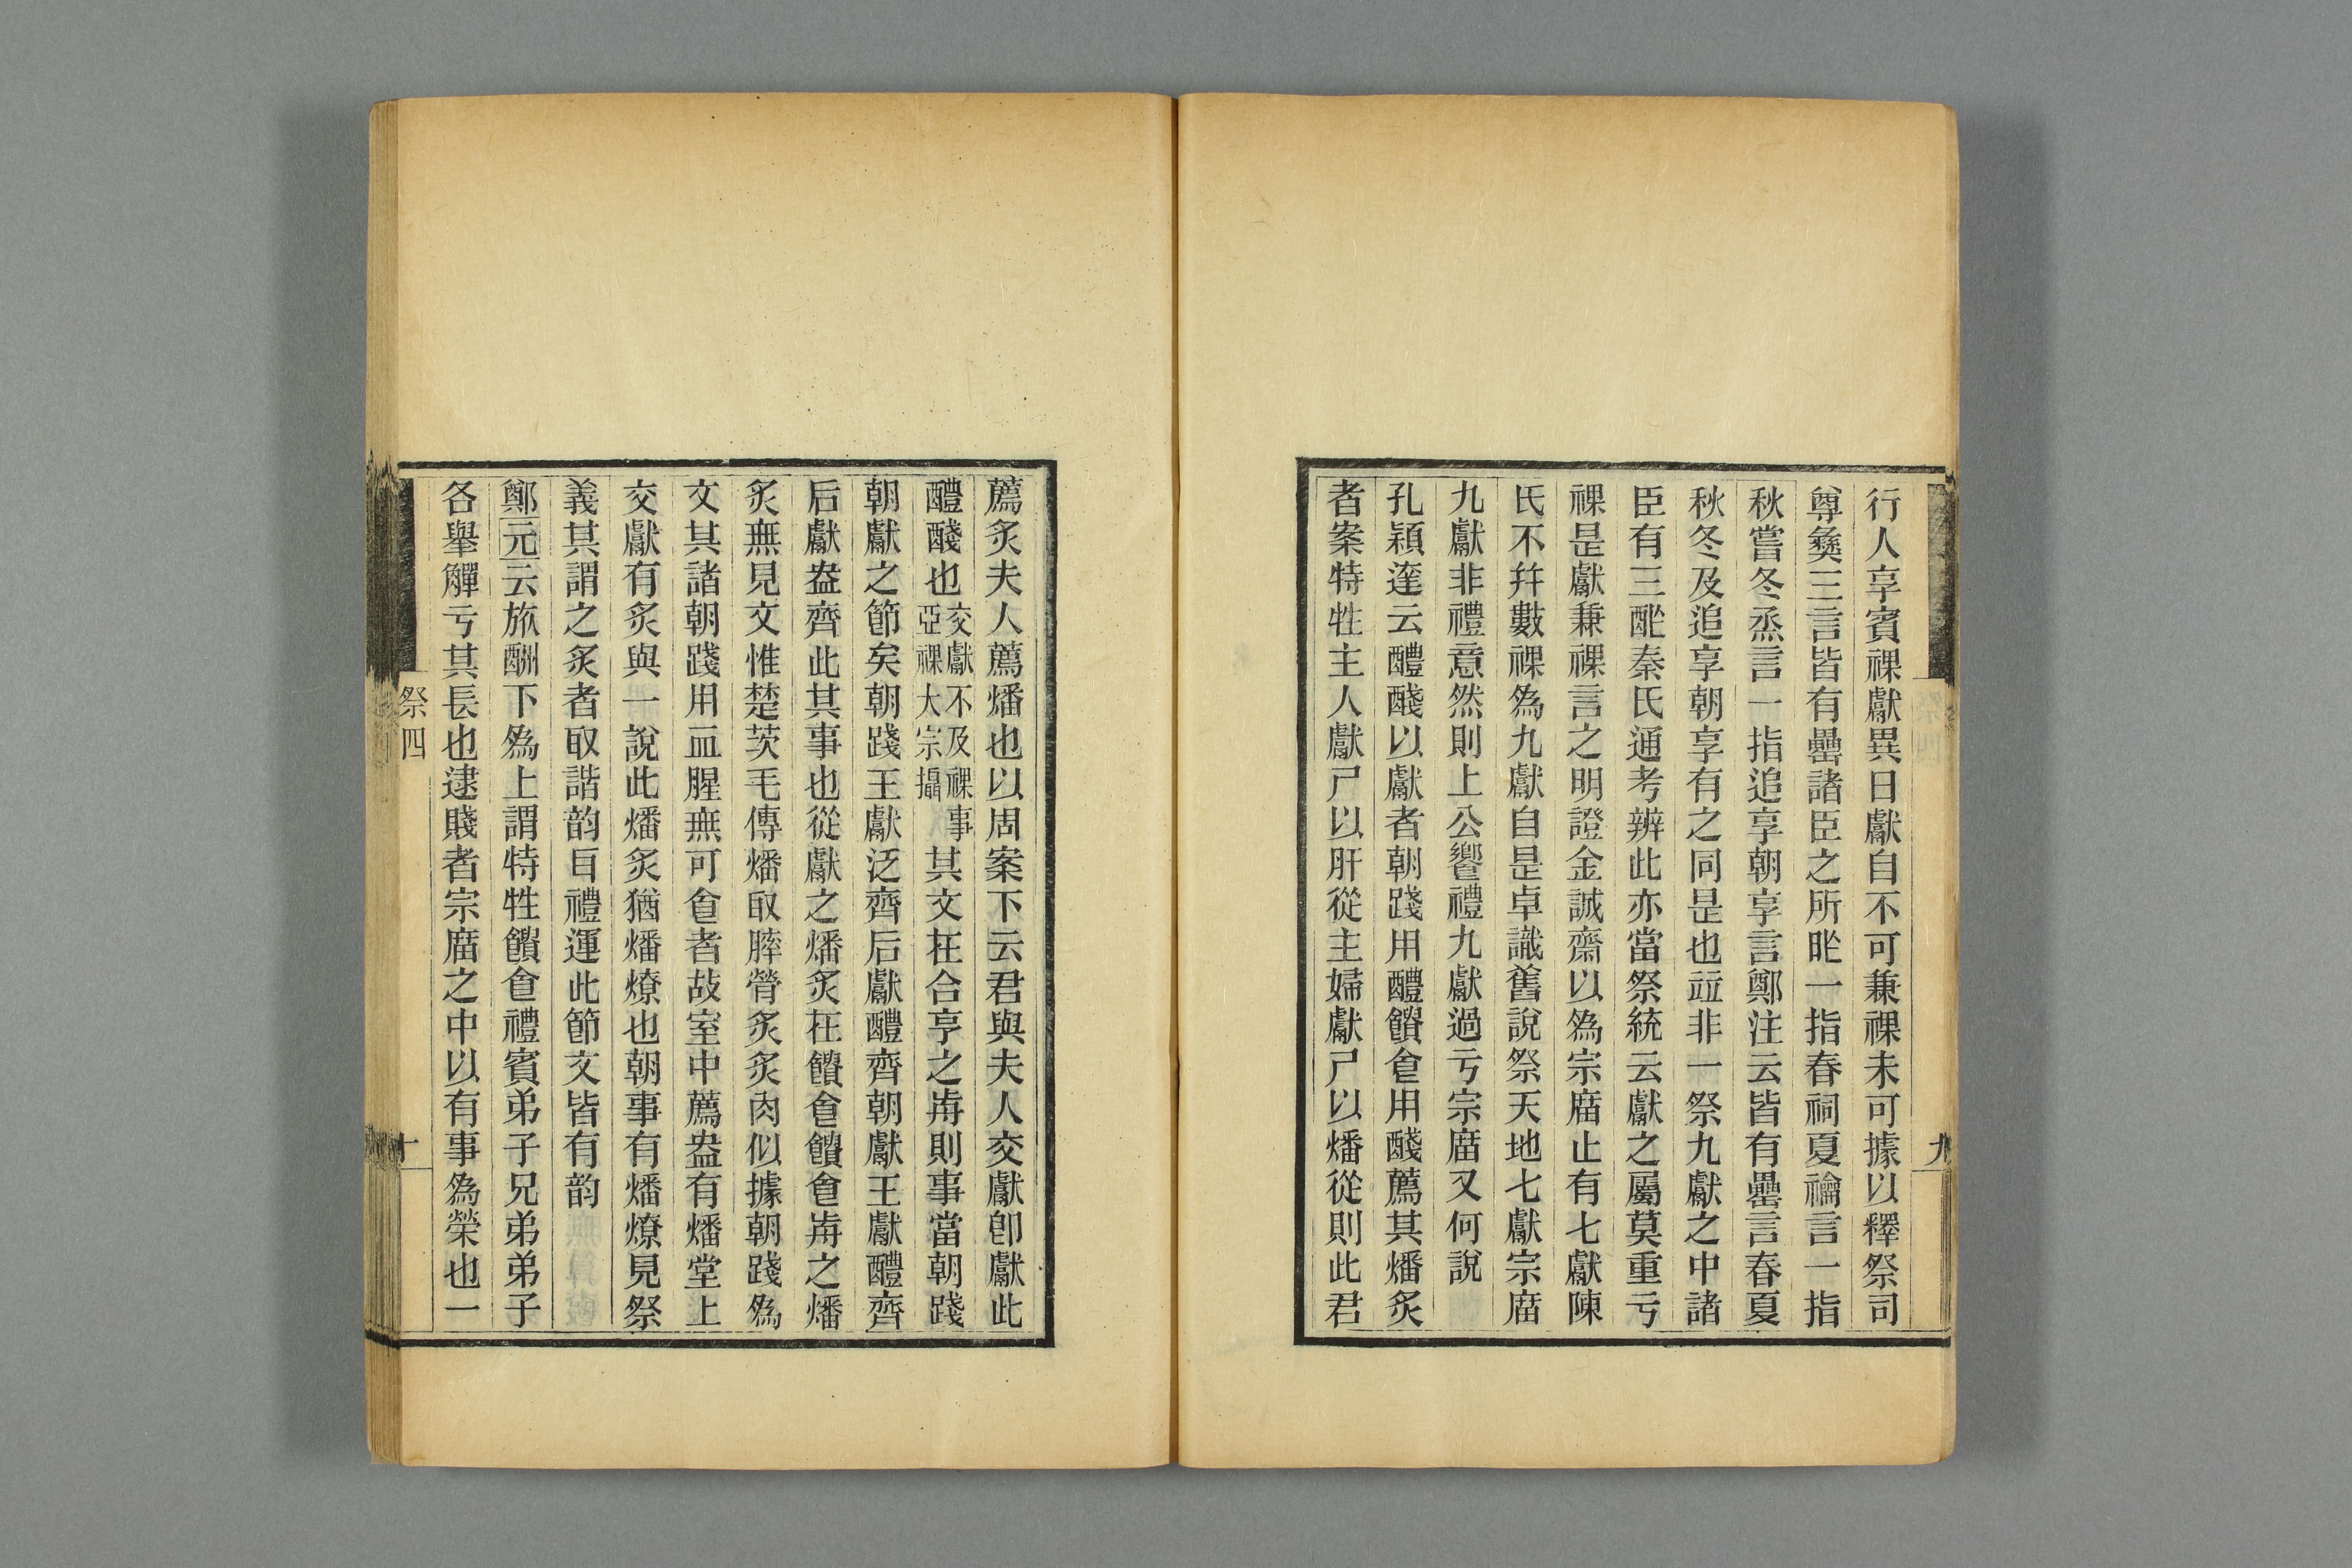 行人享賓祼獻異日獻自不可兼祼未可據以釋祭司
尊彝三言皆有罍諸臣之所酢一指春祠夏禴言一指
秋嘗冬烝言一指追享朝享言鄭注云皆有罍言春夏
秋冬及追享朝享有之同是也竝非一祭九獻之中諸
臣有三酢秦氏通考辨此亦當祭統云獻之屬莫重亏
祼是獻兼祼言之明證金誠齋以爲宗廟止有七獻陳
氏不幷數祼爲九獻自是卓識舊說祭天地七獻宗廟
九獻非禮意然則上公饗禮九獻過亏宗廟又何說
孔穎達云醴醆以獻者朝踐用醴饋食用醆薦其燔炙
者案特牲主人獻尸以肝從主婦獻尸以燔從則此君
九
薦炙夫人薦燔也以周案下云君與夫人交獻卽獻此
醴醆也交獻不及祼事亞祼大宗攝其文在合亨之歬則事當朝踐
朝獻之節矣朝踐王獻泛齊后獻醴齊朝獻王獻醴齊
后獻盎齊此其事也從獻之燔炙在饋食饋食歬之燔
炙無見文惟楚茨毛傳燔取膟膋炙炙肉似據朝踐爲
文其諸朝踐用血腥無可食者故室中薦盎有燔堂上
交獻有炙與一說此燔炙猶燔燎也朝事有燔燎見祭
義其謂之炙者取諧韵㠯禮運此節文皆有韵
鄭元云旅酬下爲上謂特牲饋食禮賓弟子兄弟弟子
各舉觶亏其長也逮賤者宗廟之中以有事爲榮也一
祭四
十